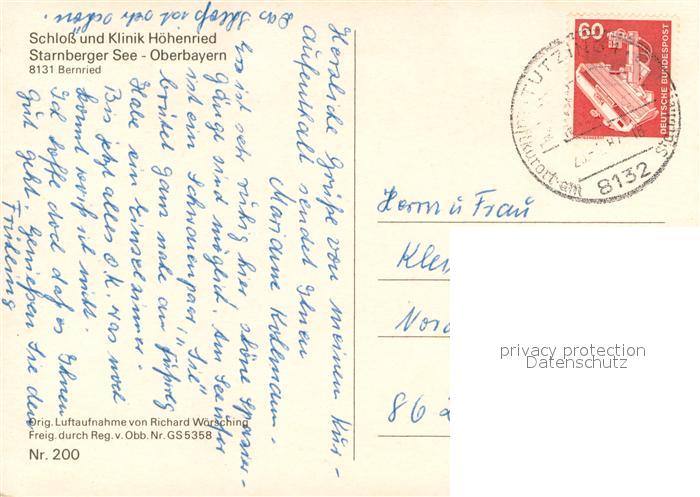 Schloß und Klinik Höhenried
Starnberger See - Oberbayern
8131 Bernried
Herzliche Grüße von meinem Kur-
aufenthalt sendet Ihnen
Mariane Kohlmann.
Es ist sehr ruhig hier schöne Spazier-
Gänge sind möglich. Am Seeufer
ist ein Schwanenpaar, "Sie"
brütet ganz nahe am Fußweg
Habe ein Einzelzimmer.
Bis jetzt alles O.K. was noch
kommt weiß ich nicht.
Ich hoffe doch daß es Ihnen
gut geht. Genießen Sie den
Frühling
Das Schloß ist sehr schön.
Orig. Luftaufnahme von Richard Wörsching
Freig. durch Reg. v. Obb. Nr. GS 5358
Nr. 200
60
DEUTSCHE BUNDESPOST
TUTZING
8132
Luftkurort am
Herrn u Frau
Nord
86
privacy protection
Datenschutz